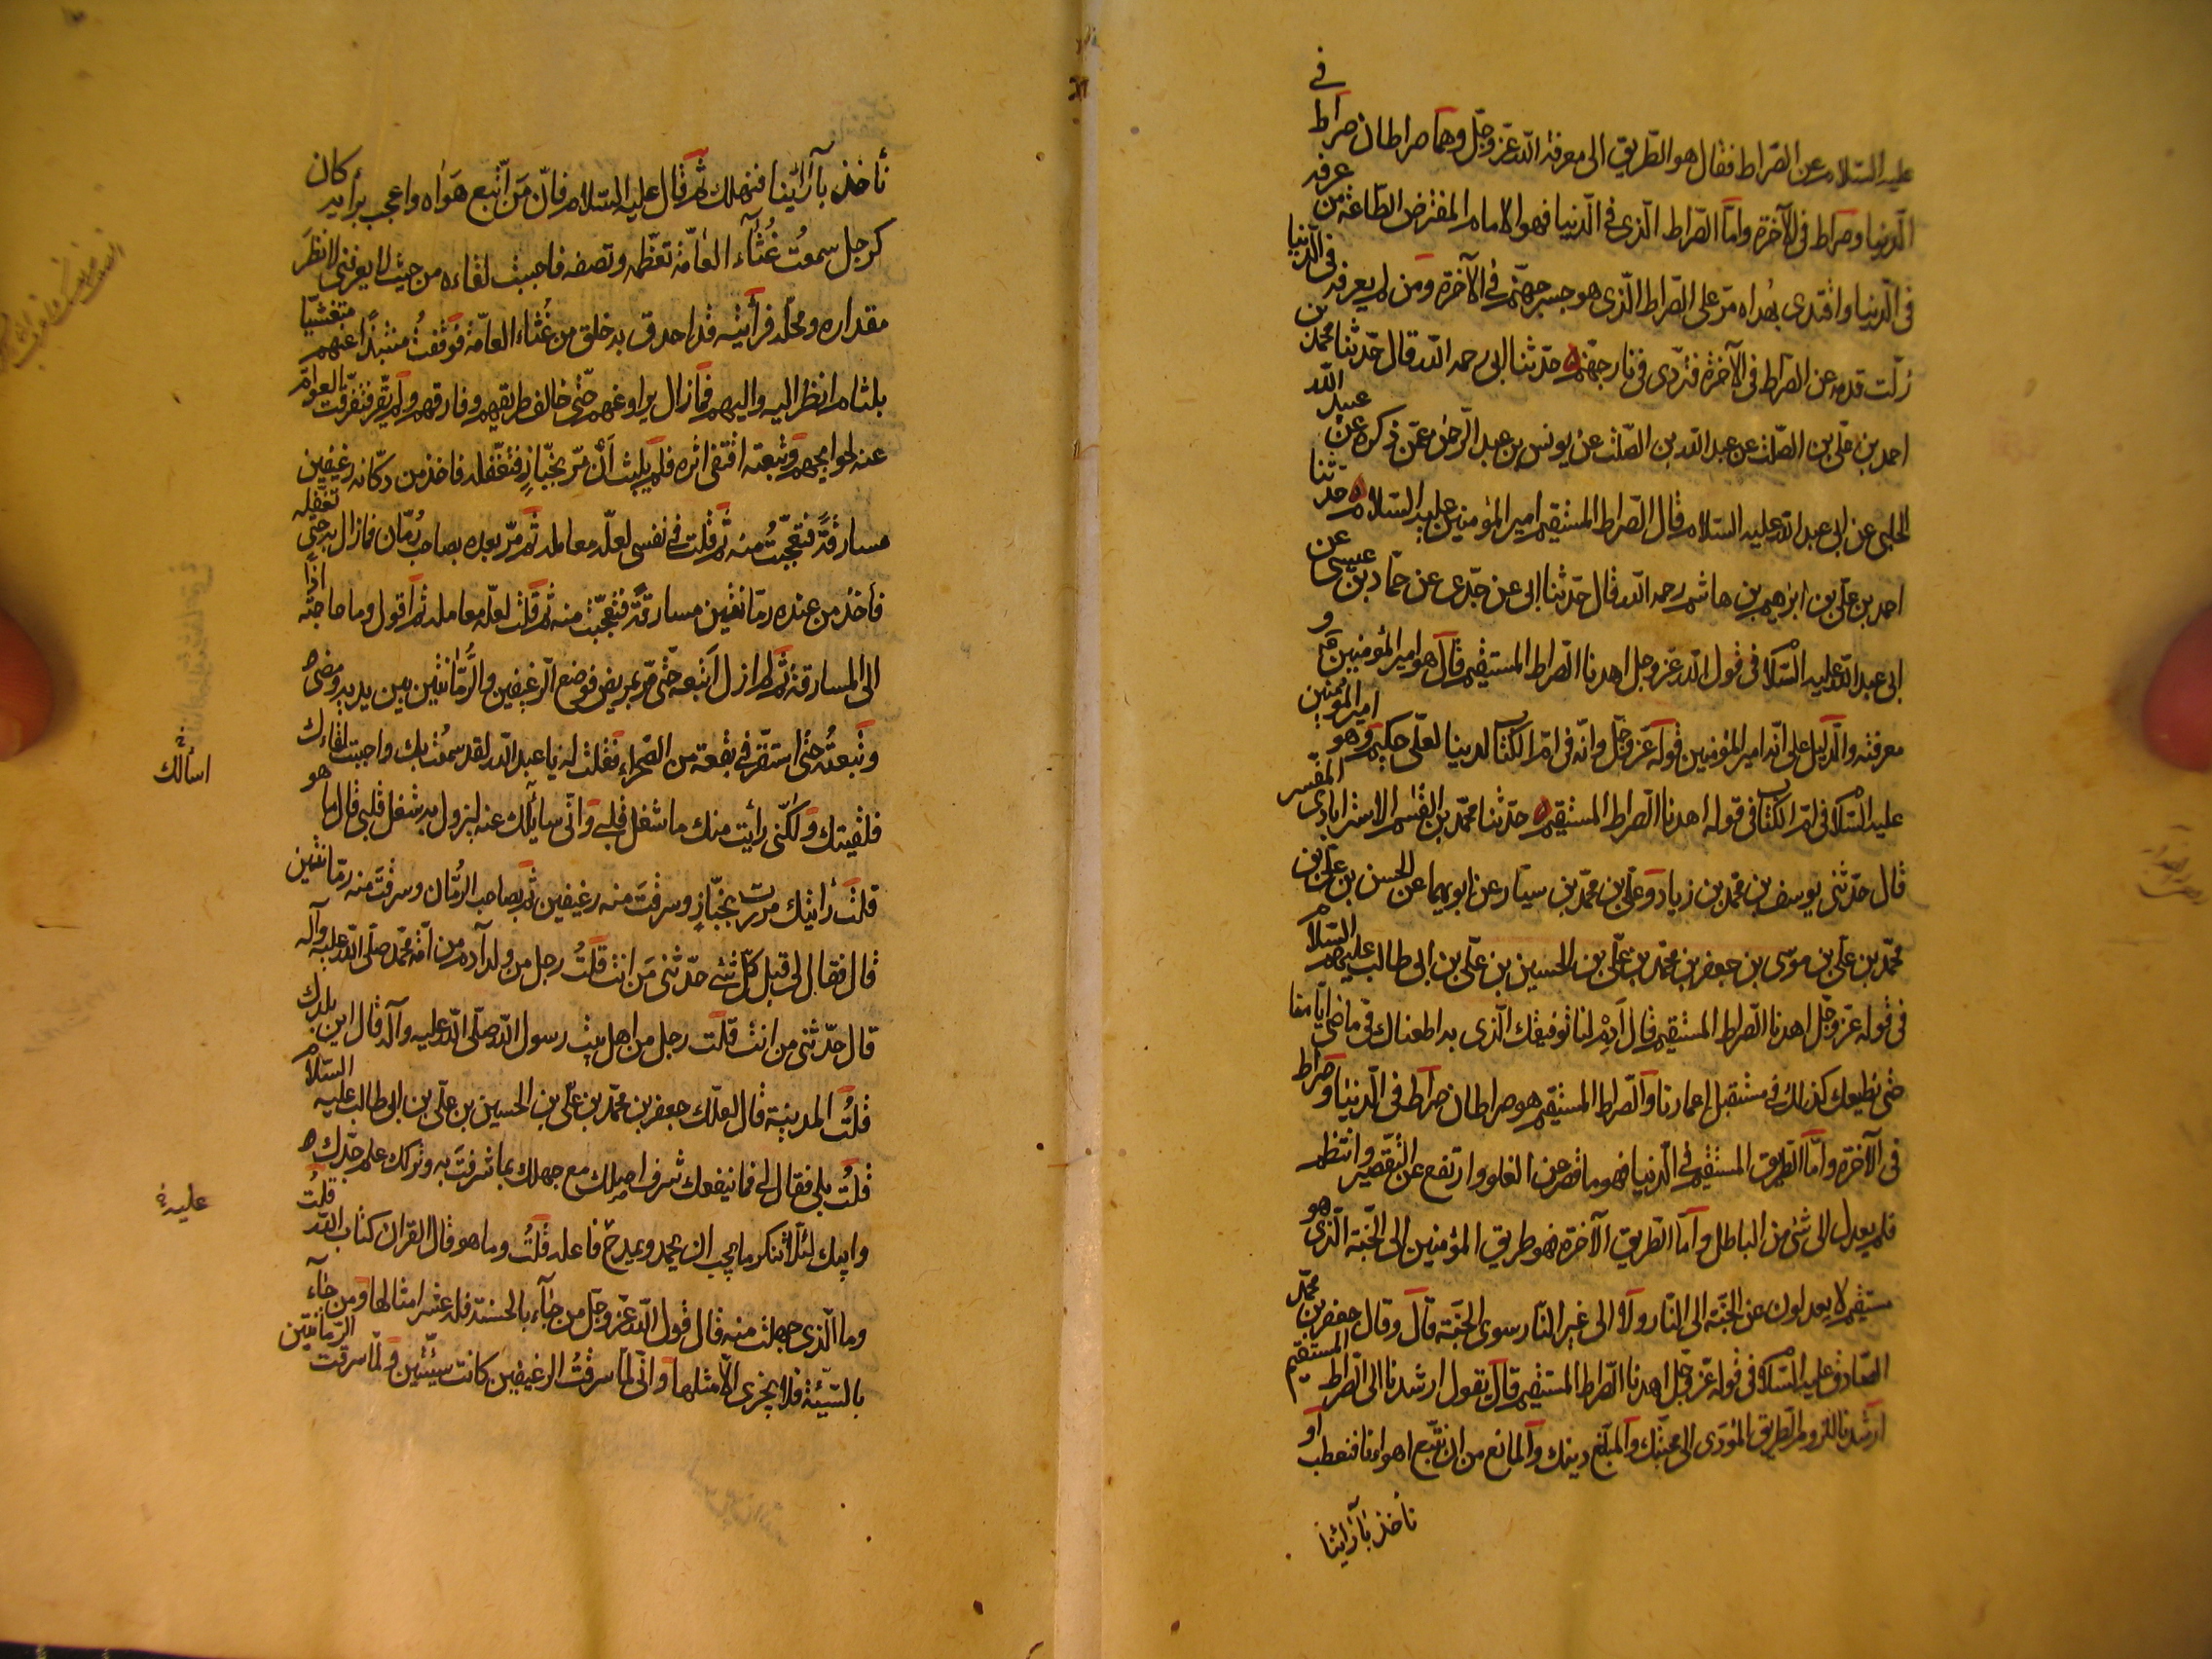 عليه السّلام عن الصّراط فقال هو الطّريق الى معرفة اللّه عزّ وجلّ وهما صراطان صراط في
الدّنيا وصراط في الآخرة وامّا الصّراط الّذي في الدّنيا فهو الامام المفترض الطّاعة من عرفه
في الدّنيا واقتدى بهداه مرّ على الصّراط الّذي هو جسر جهنّم في الآخرة ومن لم يعرفه في الدّنيا
زلّت قدمه عن الصّراط في الآخرة فتردّى في نار جهنّم حدّثنا ابي رحمه اللّه قال حدّثنا محمّد بن
احمد بن عليّ بن الصّلت عن عبد اللّه بن الصّلت عن يونس بن عبد الرّحمن عمّن ذكره عن عبيد اللّه
الحلبي عن ابي عبد اللّه عليه السّلام قال الصّراط المستقيم امير المؤمنين عليه السّلام حدّثنا
احمد بن عليّ بن ابرهيم بن هاشم رحمه اللّه قال حدّثنا ابي عن جدّي عن حمّاد بن عيسى عن
ابي عبد اللّه عليه السّلام في قول اللّه عزّ وجل اهدنا الصّراط المستقيم قال هو امير المؤمنين ع و
معرفته والدّليل على انّه امير المؤمنين قوله عزّ وجلّ وانّه في امّ الكتاب لدينا لعليّ حكيم وهو امير المؤمنين
عليه السّلام في امّ الكتاب في قوله اهدنا الصّراط المستقيم حدّثنا محمّد بن القسم الاسترابادي المفسّر
قال حدّثني يوسف بن محمّد بن زياد وعليّ بن محمّد بن سيّار عن ابويهما عن الحسن بن عليّ بن
محمّد بن عليّ بن موسى بن جعفر بن محمّد بن عليّ بن الحسين بن عليّ بن ابي طالب عليهم السّلام
في قوله عزّ وجلّ اهدنا الصّراط المستقيم قال أدم لنا توفيقك الّذي به اطعناك في ماضي ايّامنا
حتّى نطيعك كذلك في مستقبل اعمارنا والصّراط المستقيم هو صراطان صراط في الدّنيا وصراط
في الآخرة وامّا الطّريق المستقيم في الدّنيا فهو ما قصر عن الغلو وارتفع عن التّقصير وانتظم
فلم يعدل الى شئ من الباطل وامّا الطّريق الآخرة فهو طريق المؤمنين الى الجنّة الّذي هو
مستقيم لا يعدلون عن الجنّة الى النّار ولا الى غير النّار سوى الجنّة قال وقال جعفر بن محمّد
الصّادق عليه السّلام في قوله عزّ وجلّ اهدنا الصّراط المستقيم قال يقول ارشدنا الى الصّراط المستقيم
ارشدنا للزوم الطّريق المؤدّى الى محبّتك والمبلّغ دينك والمانع من ان نتّبع اهواءنا فنعطب أو
نأخذ بآرائنا
نأخذ بآرائنا فنهلك ثم قال عليه السّلام فانّ من اتّبع هواه واعجب برأيه كان
كرجل سمعت غثآء العامّة تعظّمه وتصفه فاحببت لقاءه من حيث لا يعرفني لانظر
مقداره ومحلّه فرأيته قد احدق به خلق من غثاء العامّة فوقفت منتبذا عنهم متغشّيا
بلثام انظر اليه واليهم فما زال يراوغهم حتّى خالف طريقهم وفارقهم ولم يقرّ فتفرّقت العوامّ
عنه لحوايجهم وتبعته اقتفى اثره فلم يلبث أن مرّ بخبّاز فتغفّله فاخذ من دكّانه رغيفين
مسارقة فتعجّبت منه ثم قلت في نفسي لعلّه معامله ثم مرّ بعده بصاحب رمّان فما زال به حتّى تغفّله
فأخذ من عنده رمّانتين مسارقة فتعجّبت منه ثم قلت لعلّه معامله ثم اقول وما حاجته اذا
الى المسارقة ثم لم ازل اتبعه حتّى مرّ بمريض فوضع الرغيفين والرّمّانتين بين يديه ومضى
وتبعته حتّى استقرّ في بقعة من الصّحراء فقلت له يا عبد اللّه لقد سمعت بك واحببت لقاءك
فلقيتك ولكنّي رأيت منك ما شغل قلبي وانّي سايلك عنه ليزول به شغل قلبي قال ما هو
قلت رأيتك مررت بخبّاز وسرقت منه رغيفين ثم بصاحب الرّمّان وسرقت منه رمّانتين
قال فقال لي قبل كلّ شئ حدّثني من انت قلت رجل من ولد آدم من امّة محمّد صلّى اللّه عليه وآله
قال حدّثني من انت قلت رجل من اهل بيت رسول اللّه صلّى اللّه عليه وآله قال اين بلدك
قلت المدينة قال لعلّك جعفر بن محمّد بن عليّ بن الحسين بن عليّ بن ابي طالب عليه السّلام
قلت بلى فقال لي فما ينفعك شرف اصلك مع جهلك بما شرفت به وتركك علم جدّك
وابيك لئلّا تنكر ما يجب ان يحمد ويمدح فاعله قلت وما هو قال القران كتاب اللّه قلت
وما الّذي جهلت منه قال قول اللّه عزّ وجلّ من جآء بالحسنة فله عشر امثالها ومن جآء
بالسّيّئة فلا يجزى الّا مثلها وانّي لمّا سرقت الرغيفين كانت سيّئتين ولمّا سرقت الرّمّانتين
اسألك
عليه